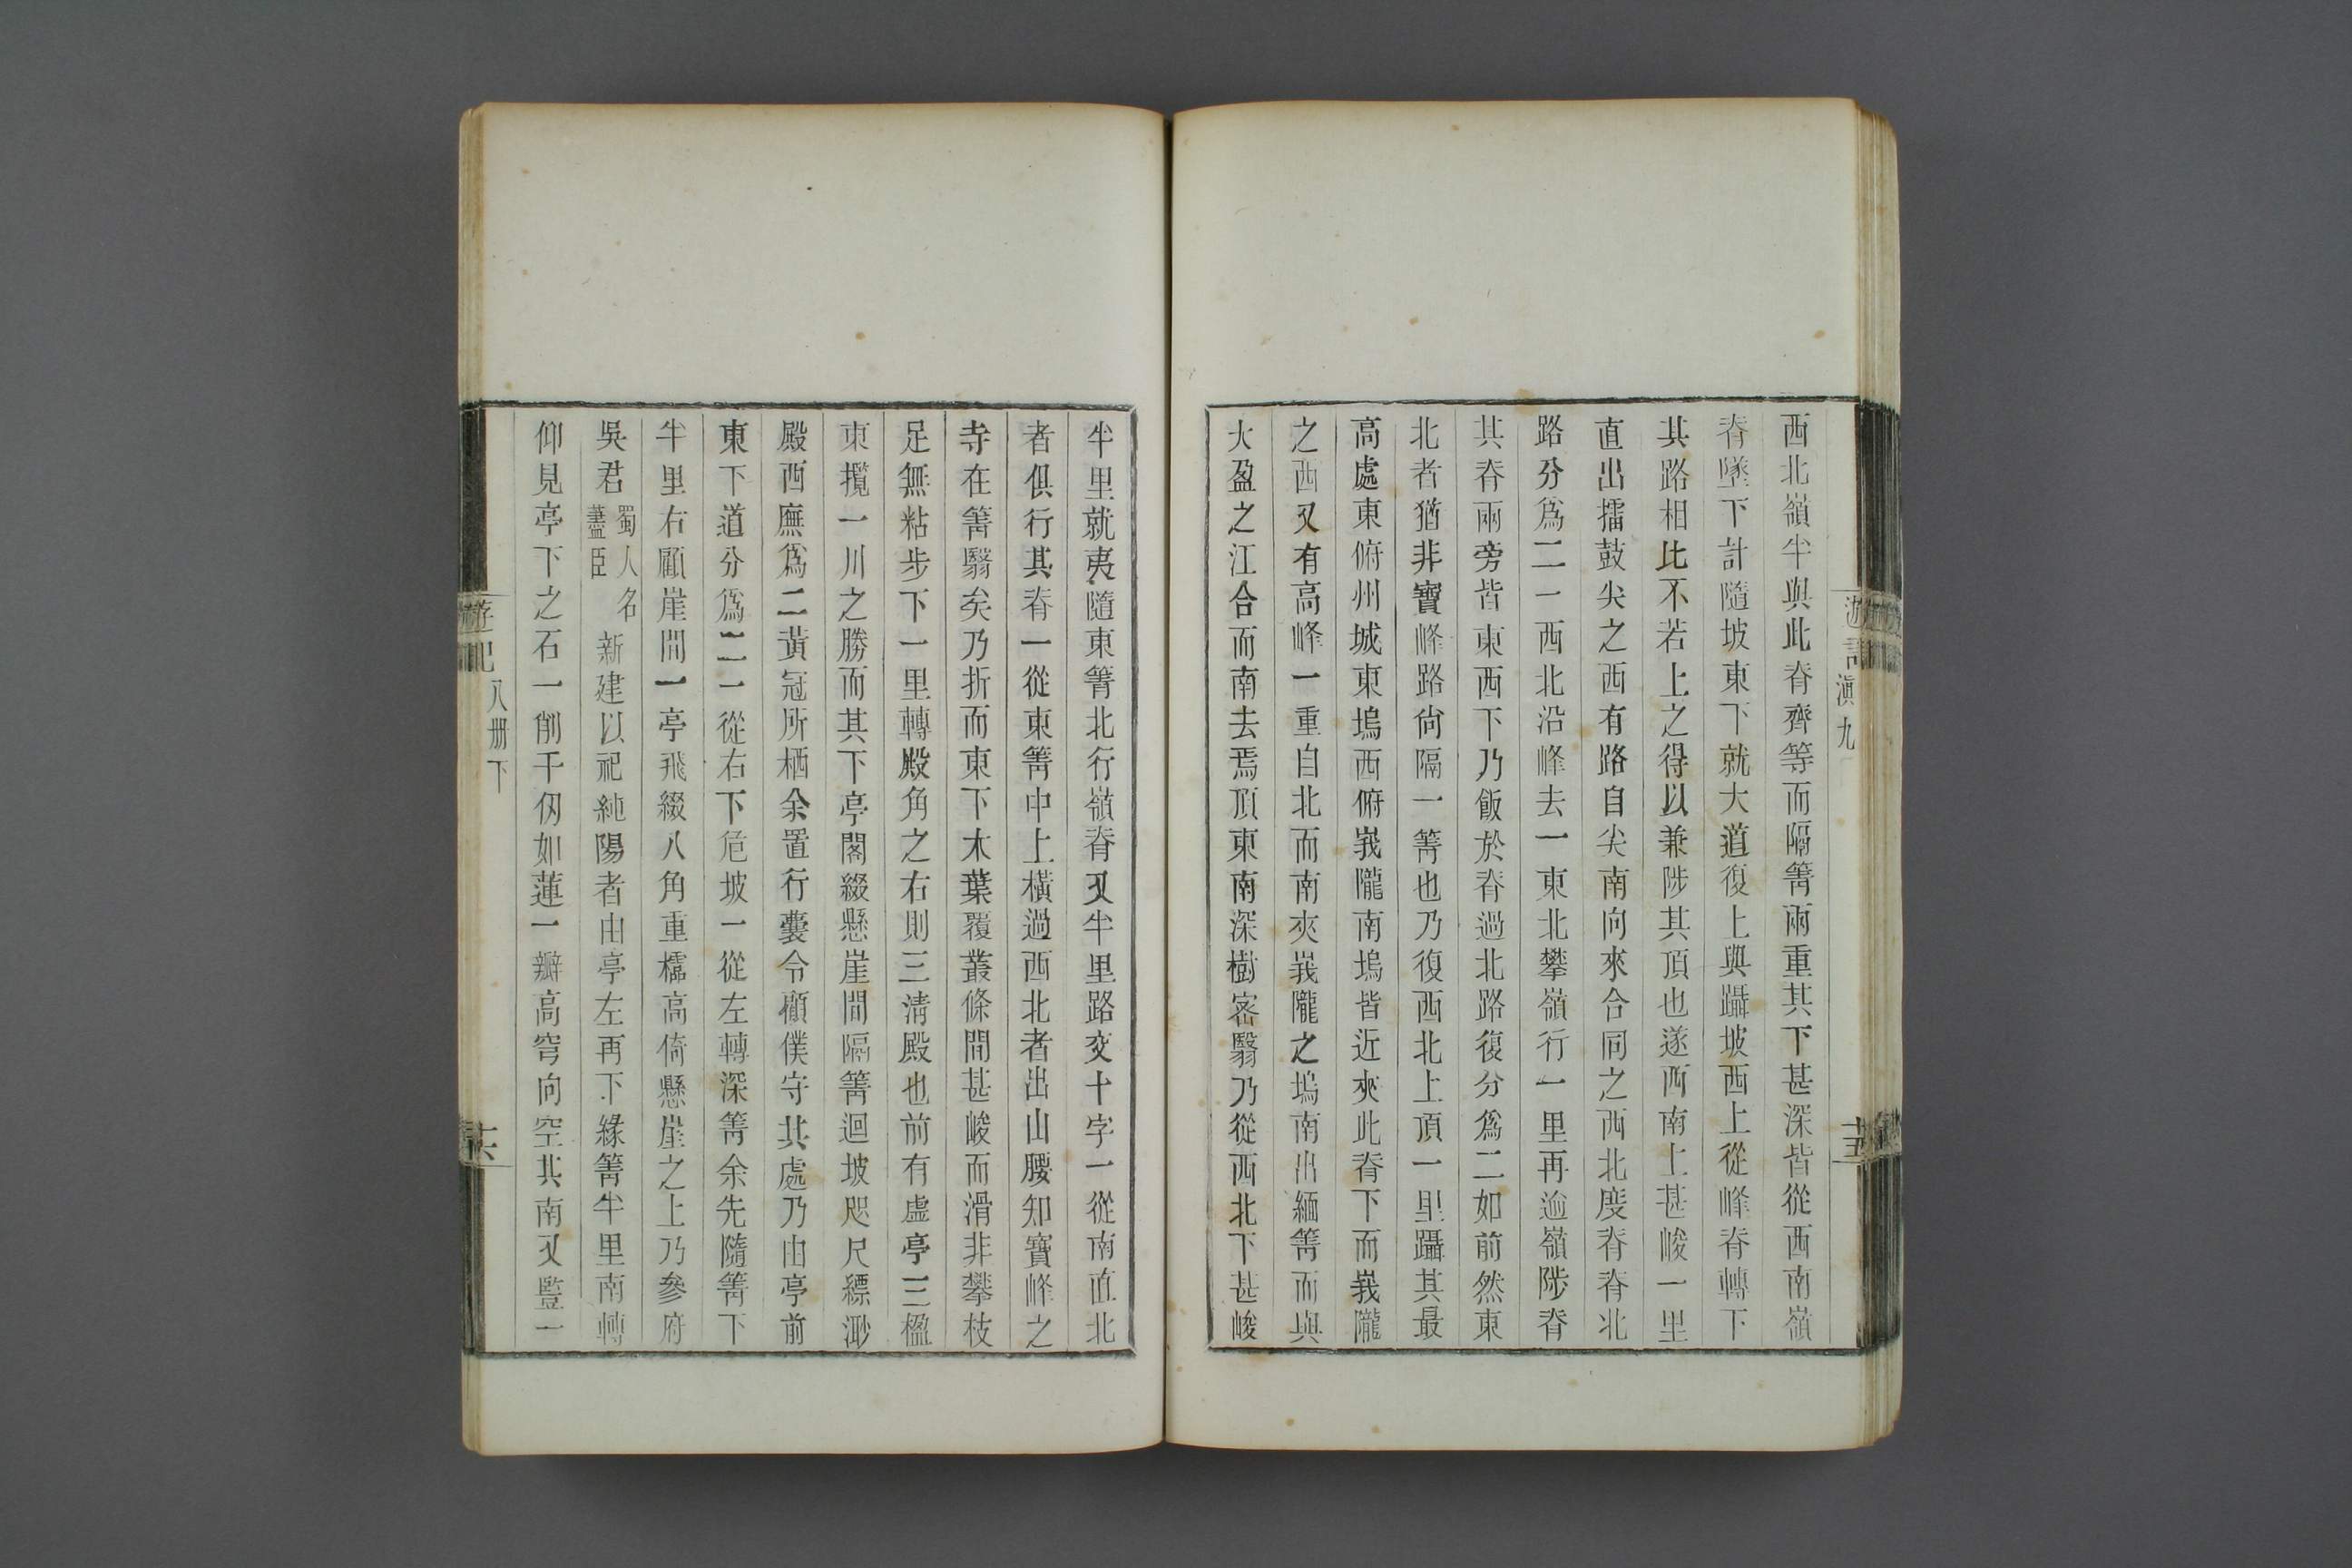 西北嶺半與此脊齊等而隔箐兩重其下甚深皆從西南嶺
脊墜下計隨坡東下就大道復上與躡坡西上從峰脊轉下
其路相比不若上之得以兼陟其頂也遂西南上甚峻一里
直出擂鼓尖之西有路自尖南向來合同之西北度脊脊北
路分爲二一西北沿峰去一東北攀嶺行一里再逾嶺陟脊
其脊兩旁皆東西下乃飯於脊過北路復分爲二如前然東
北者猶非寶峰路尙隔一箐也乃復西北上頂一里躡其最
高處東俯州城東塢西俯峩隴南塢皆近夾此脊下而峩隴
之西又有高峰一重自北而南夾峩隴之塢南出緬箐而與
大盈之江合而南去焉頂東南深樹密翳乃從西北下甚峻
遊記 滇九
十五
半里就夷隨東箐北行嶺脊又半里路交十字一從南直北
者俱行其脊一從東箐中上橫過西北者出山腰知寶峰之
寺在箐翳矣乃折而東下木葉覆叢條間甚峻而滑非攀枝
足無粘步下一里轉殿角之右則三清殿也前有虛亭三楹
東攬一川之勝而其下亭閣綴懸崖間隔箐迴坡咫尺縹渺
殿西廡爲二黃冠所栖余置行囊令顧僕守其處乃由亭前
東下道分爲二一從右下危坡一從左轉深箐余先隨箐下
半里右顧崖間一亭飛綴八角重櫺高倚懸崖之上乃參府
吳君蜀人名藎臣新建以祀純陽者由亭左再下緣箐半里南轉
仰見亭下之石一削千仞如蓮一瓣高穹向空其南又豎一
遊記 八册下
十六